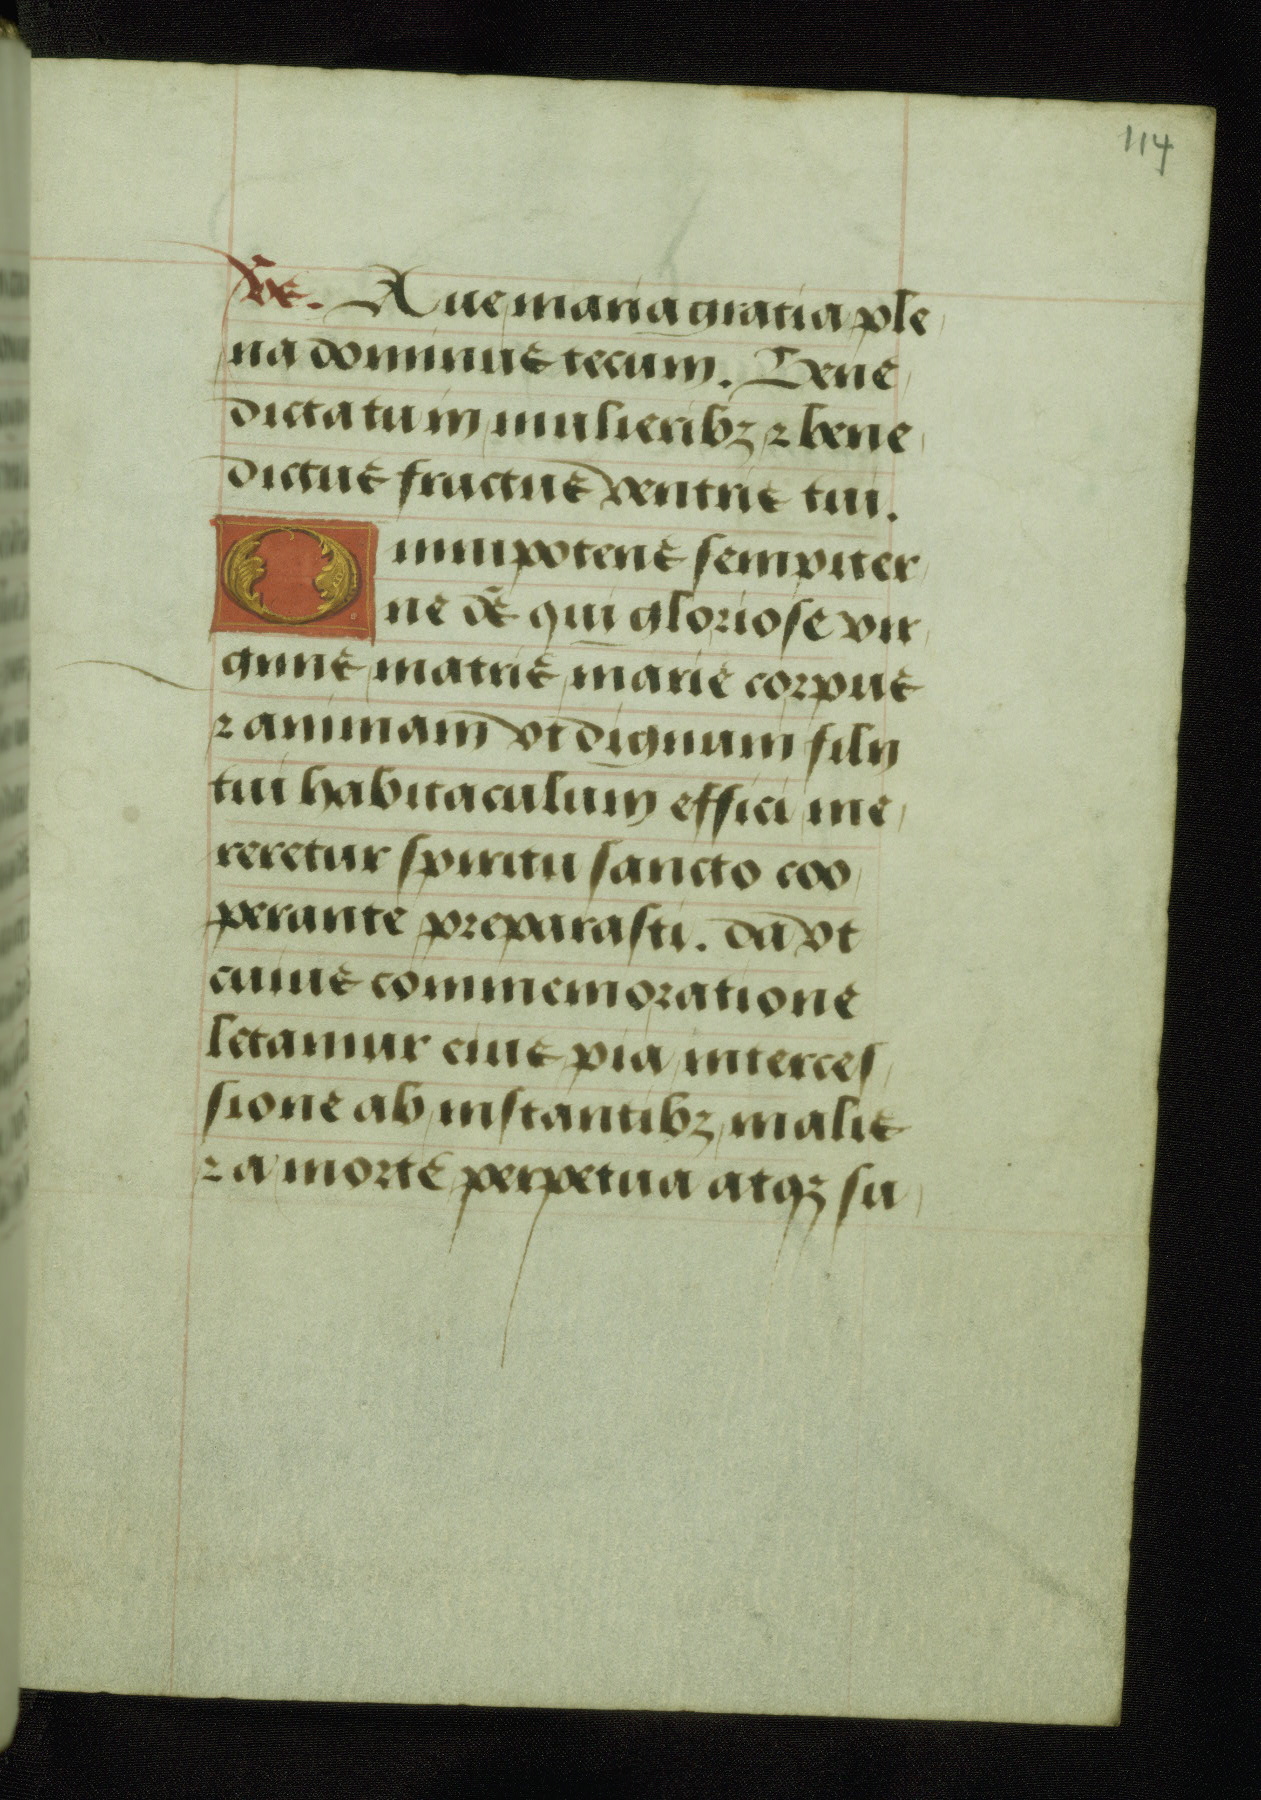 114
v̄s. Aue maria gratia ple
na dominus tecum. Bene
dicta tu in mulieribꝫ ⁊ bene
dictus fructus ventris tui.
Omnipotens sempiter
ne d̄s qui gloriose vir
ginis matris marie corpus
⁊ animam vt dignum filij
tui habitaculum effici me
reretur spiritu sancto coo
perante preparasti. da vt
cuius commemoratione
letamur eius pia interces
sione ab instantibꝫ malis
⁊ a morte perpetua atqꝫ su